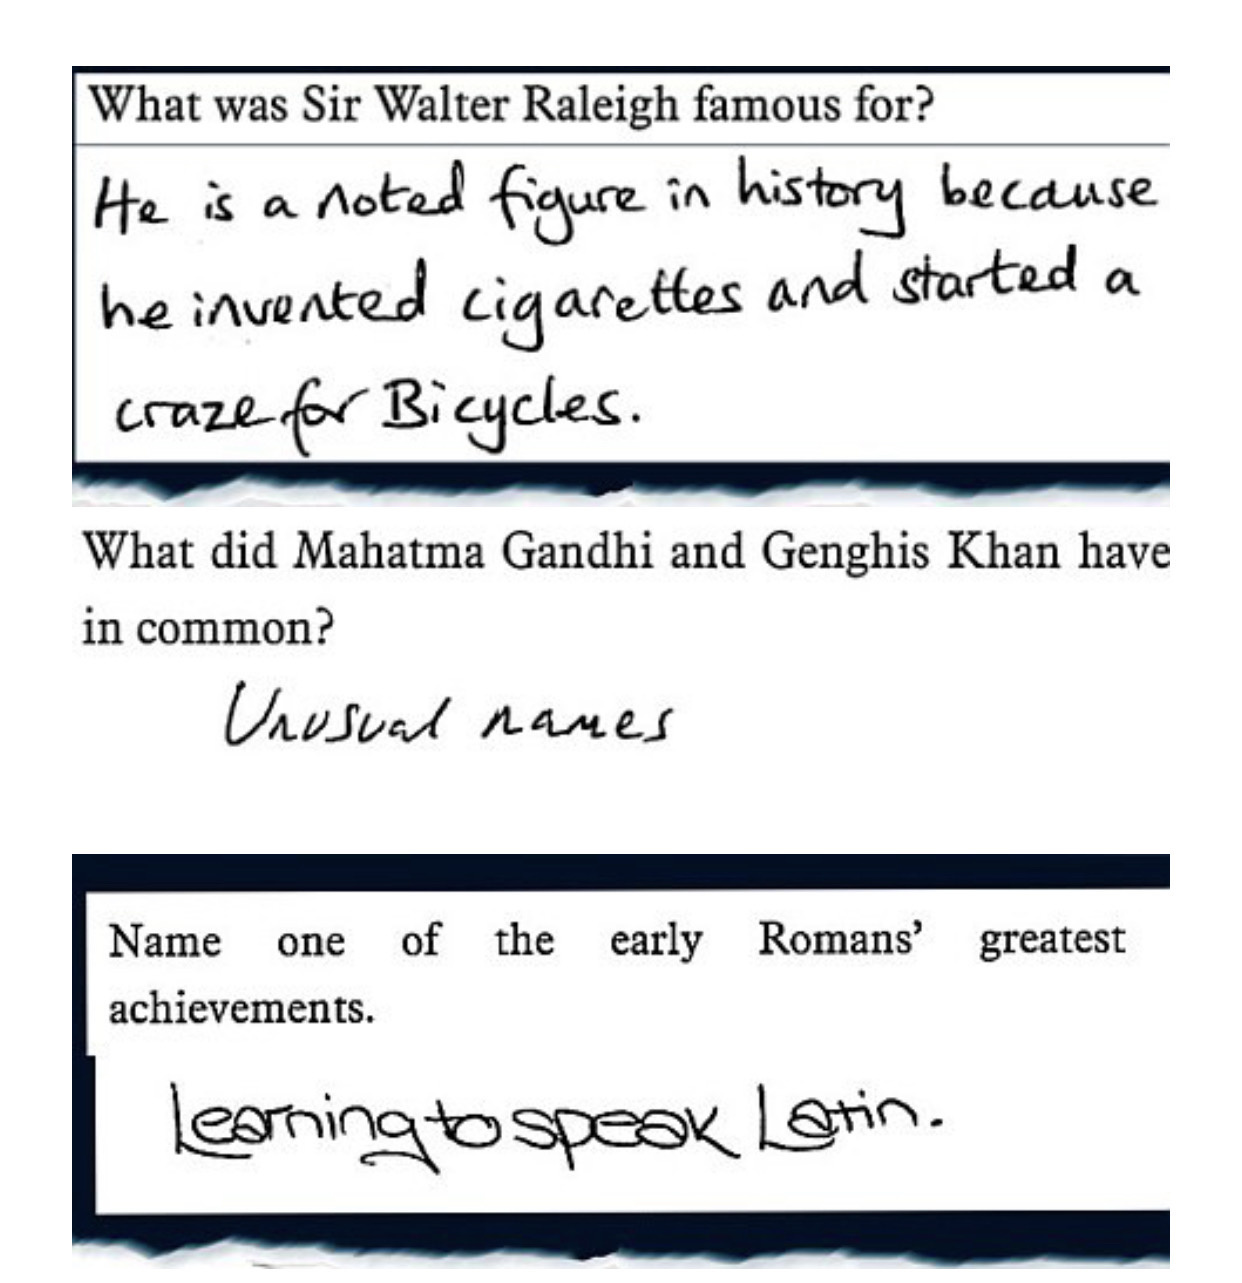 What was Sir Walter Raleigh famous for?
He is a noted figure in history because
he invented cigarettes and started a
craze for Bicycles.
What did Mahatma Gandhi and Genghis Khan have
in common?
Unusual names
Name one of the early Romans’ greatest
achievements.
Learning to speak Latin.